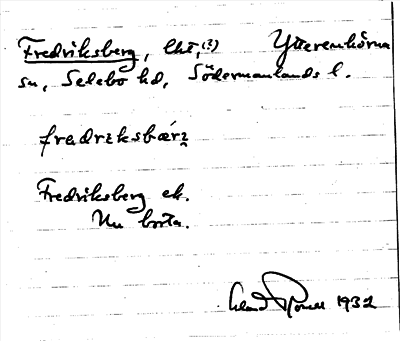 Fredriksberg, lht,(?) Ytterenhörna
sn, Selebo hd, Södermanlands l.
fradrɩksbærɩ̯
Fredriksberg ek.
Nu borta.
1932